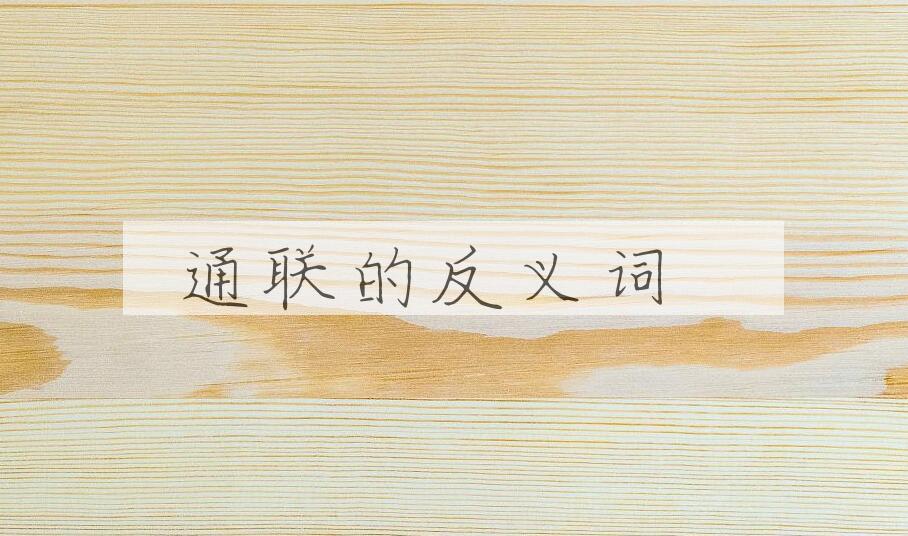 通联的反义词